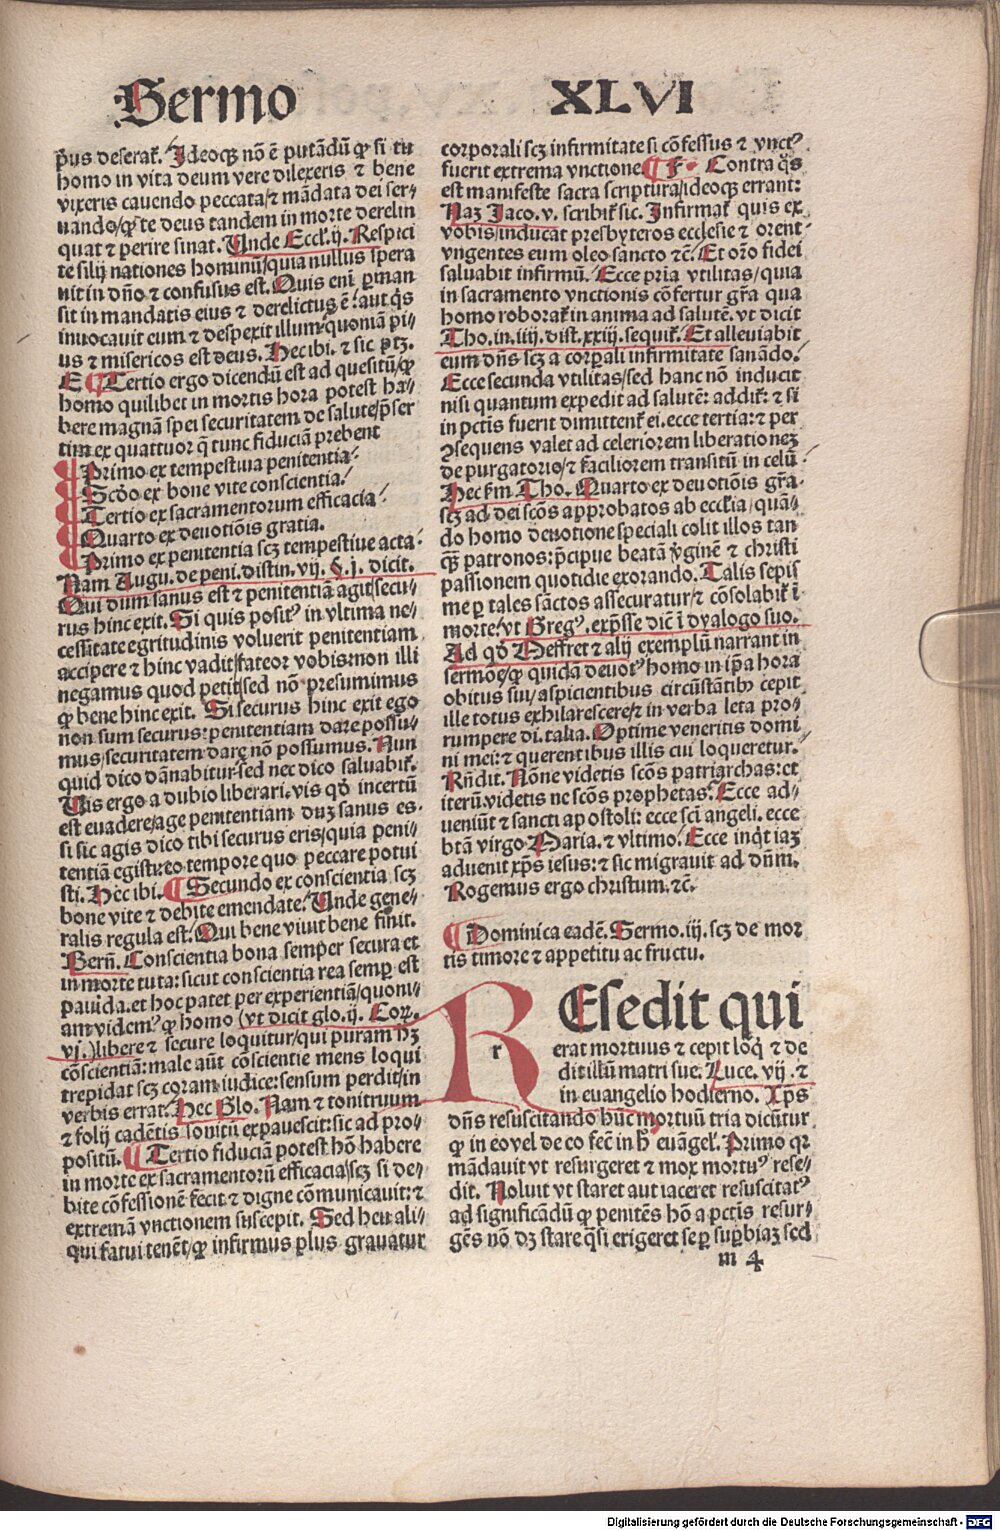 Sermo XLVI
p̄us deserat᷑. Ideoqȝ nō ē putādū ꝙ si tu
homo in vita deum vere dilexeris ⁊ bene
vixeris cauendo peccata/⁊ mādata dei ser⸗
uando/ꝙ te deus tandem in morte derelin
quat ⁊ perire sinat. Unde Eccl᷑.ij. Respici
te filij nationes hominū/quia nullus spera
uit in dn̄o ⁊ confusus est. Quis eni ꝑman
sit in mandatis eius ⁊ derelictus ē: aut q̄s
inuocauit eum ⁊ despexit illum/quoniā pi⸗
us ⁊ misericos est deus. Hec ibi. ⁊ sic ptȝ.
E ¶ Tertio ergo dicendū est ad quesitū/ꝙ
homo quilibet in mortis hora potest ha⸗
bere magnā spei securitatem de salute/p̄ser
tim ex quattuor q̄ tunc fiduciā prebent
¶ Primo ex tempestiua penitentia.
¶ Scd̄o ex bone vite conscientia.
¶ Tertio ex sacramentorum efficacia.
¶ Quarto ex deuotiōis gratia.
¶ Primo ex penitentia scȝ tempestiue acta.
Nam Augu. de peni. distin. vij. §. j. dicit.
Qui dum sanus est ⁊ penitentiā agit/secu⸗
rus hinc exit. Si quis posit⁹ in vltima ne⸗
cessitate egritudinis voluerit penitentiam
accipere ⁊ hinc vadit/fateor vobis:non illi
negamus quod petit/sed nō presumimus
ꝙ bene hinc exit. Si securus hinc exit ego
non sum securus:penitentiam dare possu⸗
mus/securitatem dare nō possumus. Nun
quid dico dānabitur:sed nec dico saluabit᷑.
Uis ergo a dubio liberari.vis qd̄ incertū
est euadere/age penitentiam duȝ sanus es.
si sic agis dico tibi securus eris/quia peni⸗
tentiā egisti:eo tempore quo peccare potui
sti. Hec ibi. ¶ Secundo ex conscientia scȝ
bone vite ⁊ debite emendate. Unde gene⸗
ralis regula est. Qui bene viuit bene finit.
Bern̄. Conscientia bona semper secura et
in morte tuta: sicut conscientia rea semꝑ est
pauida.et hoc patet per experientiā/quoni⸗
am videm⁹ ꝙ homo (vt dicit glo.ij. Cor.
vj.)libere ⁊ secure loquitur/qui puram hȝ
cōscientiā: male aūt cōscientie mens loqui
trepidat scȝ coram iudice:sensum perdit/in
verbis errat. Hec Glo. Nam ⁊ tonitruum
⁊ folij cadētis sonitū expauescit:sic ad pro⸗
positū. ¶ Tertio fiduciā potest hō habere
in morte ex sacramentorū efficacia/scȝ si de⸗
bite cōfessionē fecit ⁊ digne cōmunicauit: ⁊
extremā vnctionem suscepit. Sed heu ali⸗
qui fatui tenēt/ꝙ infirmus ꝑlus grauatur
corporali scȝ infirmitate si cōfessus ⁊ vnct⁹
fuerit extrema vnctione ¶ F. Contra q̄s
est manifeste sacra scriptura/ideoqȝ errant:
Naȝ Jaco. v. scribit᷑ sic. Infirmat᷑ quis ex
vobis/inducat presbyteros ecclesie ⁊ orent
vngentes eum oleo sancto ⁊c̄. Et oro fidei
saluabit infirmū. Ecce pria vtilitas/quia
in sacramento vnctionis cōfertur gr̄a qua
homo roborat᷑ in anima ad salutē. vt dicit
Tho. in. iiij. dist. xxiij. sequit᷑. Et alleuiabit
eum dn̄s scȝ a corꝑali infirmitate sanādo.
Ecce secunda vtilitas/sed hanc nō inducit
nisi quantum expedit ad salutē: addit᷑: ⁊ si
in pctis fuerit dimittent᷑ ei. ecce tertia: ⁊ per
ꝯsequens valet ad celeriorem liberationeȝ
de purgatorio/⁊ faciliorem transitū in celū.
Hec s̄m Tho. Quarto ex deuotiōis gr̄a.
scȝ ad dei scōs approbatos ab eccl᷑ia/quā⸗
do homo deuotione speciali colit illos tan
qȝ patronos: p̄cipue beatā v̄ginē ⁊ christi
passionem quotidie exorando. Talis sepis
me ꝑ tales sāctos assecuratur/⁊ cōsolabit᷑ ī
morte: vt Greg⁹. exp̄sse dic̄ ī dyalogo suo.
Ad qd̄ Meffret ⁊ alij exemplū narrant in
sermōe/ꝙ quidā deuot⁹ homo in ip̄a hora
obitus sui/aspicientibus circūstātibꝫ cepit
ille totus exhilarescere/⁊ in verba leta pro⸗
rumpere di. talia. Optime veneritis domi⸗
ni mei: ⁊ querentibus illis cui loqueretur.
Rn̄dit. Nōne videtis scōs patriarchas: et
iterū.videtis ne scōs prophetas. Ecce ad⸗
ueniūt ⁊ sancti apostoli: ecce sc̄i angeli. ecce
btā virgo Maria. ⁊ vltimo. Ecce inqt iaȝ
aduenit xp̄s iesus: ⁊ sic migrauit ad dn̄m.
Rogemus ergo christum.⁊c̄.
¶ Dominica eadē. Sermo. iij. scȝ de mor
tis timore ⁊ appetitu ac fructu.
REsedit qui
r
erat mortuus ⁊ cepit loq̄ ⁊ de
dit illū matri sue. Luce. vij. ⁊
in euangelio hodierno. Xp̄s
dn̄s resuscitando hūc mortuū tria dicūtur
ꝙ in eo vel de eo fec̄ in h̄ euāgel᷑. Primo qꝛ
mādauit vt resurgeret ⁊ mox mortu⁹ rese⸗
dit. Noluit vt staret aut iaceret resuscitat⁹
ad significādū ꝙ penitēs hō a pctis resur⸗
gēs nō dȝ stare qsi erigeret se ꝑ suꝑbiaȝ sed
m 4
Digitalisierung gefördert durch die Deutsche Forschungsgemeinschaft - DFG